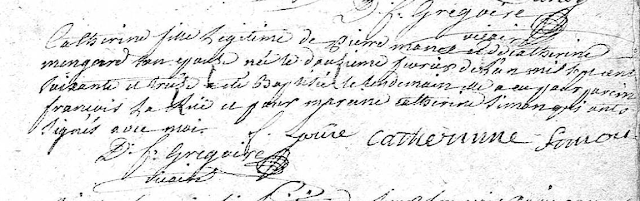 D. f. Gregoire
vicaire
Catherine fille Legitime de Pierre mance et de Catherine
mengeard son epouse née le douzieme fevrier de l'an mil sept cent
soixante et treize a eté Baptisée le lendemain elle a eu pour parein
françois La Rüe et pour mareine catherine simon qui ont
signés avec moi. f. Larüe catherinne Simon
D. f. Gregoire
vicaire